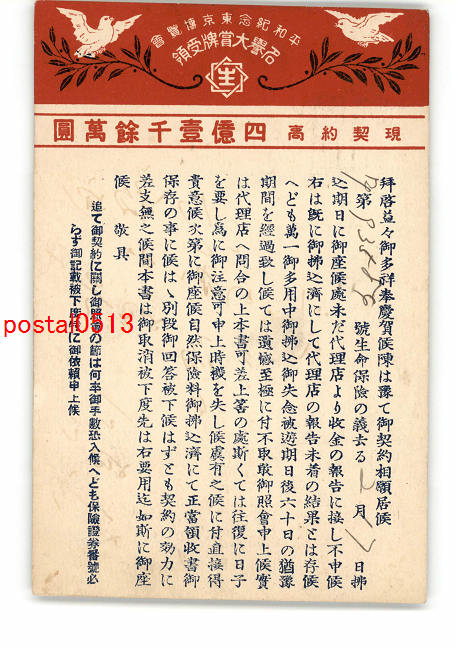 平和紀念東京博覽會
名譽大賞牌受領
生
現契約高 四億壹千餘萬圓
拜啓益々御多祥奉慶賀候陳は豫て御契約相願居候
第 號生命保險の義去る 2 月 17 日拂
込期日に御座候處未だ代理店より收金の報告に接し不申候
右は既に御拂込濟にして代理店の報告未着の結果とは存候
へども萬一御多用中御拂込御失念被遊期日後六十日の猶豫
期間を經過致し候ては遺憾至極に付不取敢御照會申上候實
は代理店へ問合の上本書可差上筈の處斯くては往復に日子
を要し爲に御注意可申上時機を失し候虞有之候に付直接得
貴意候次第に御座候自然保險料御拂込濟にて正當領收書御
保存の事に候はゞ別段御回答被下候はずとも契約の効力に
差支無之候間本書は御取消被下度先は右要用迄如斯に御座
候 敬具
追て御契約に關し御照會の節は何卒御手數恐入候へども保險證券番號必
らず御記載被下度特に御依賴申上候
postal0513